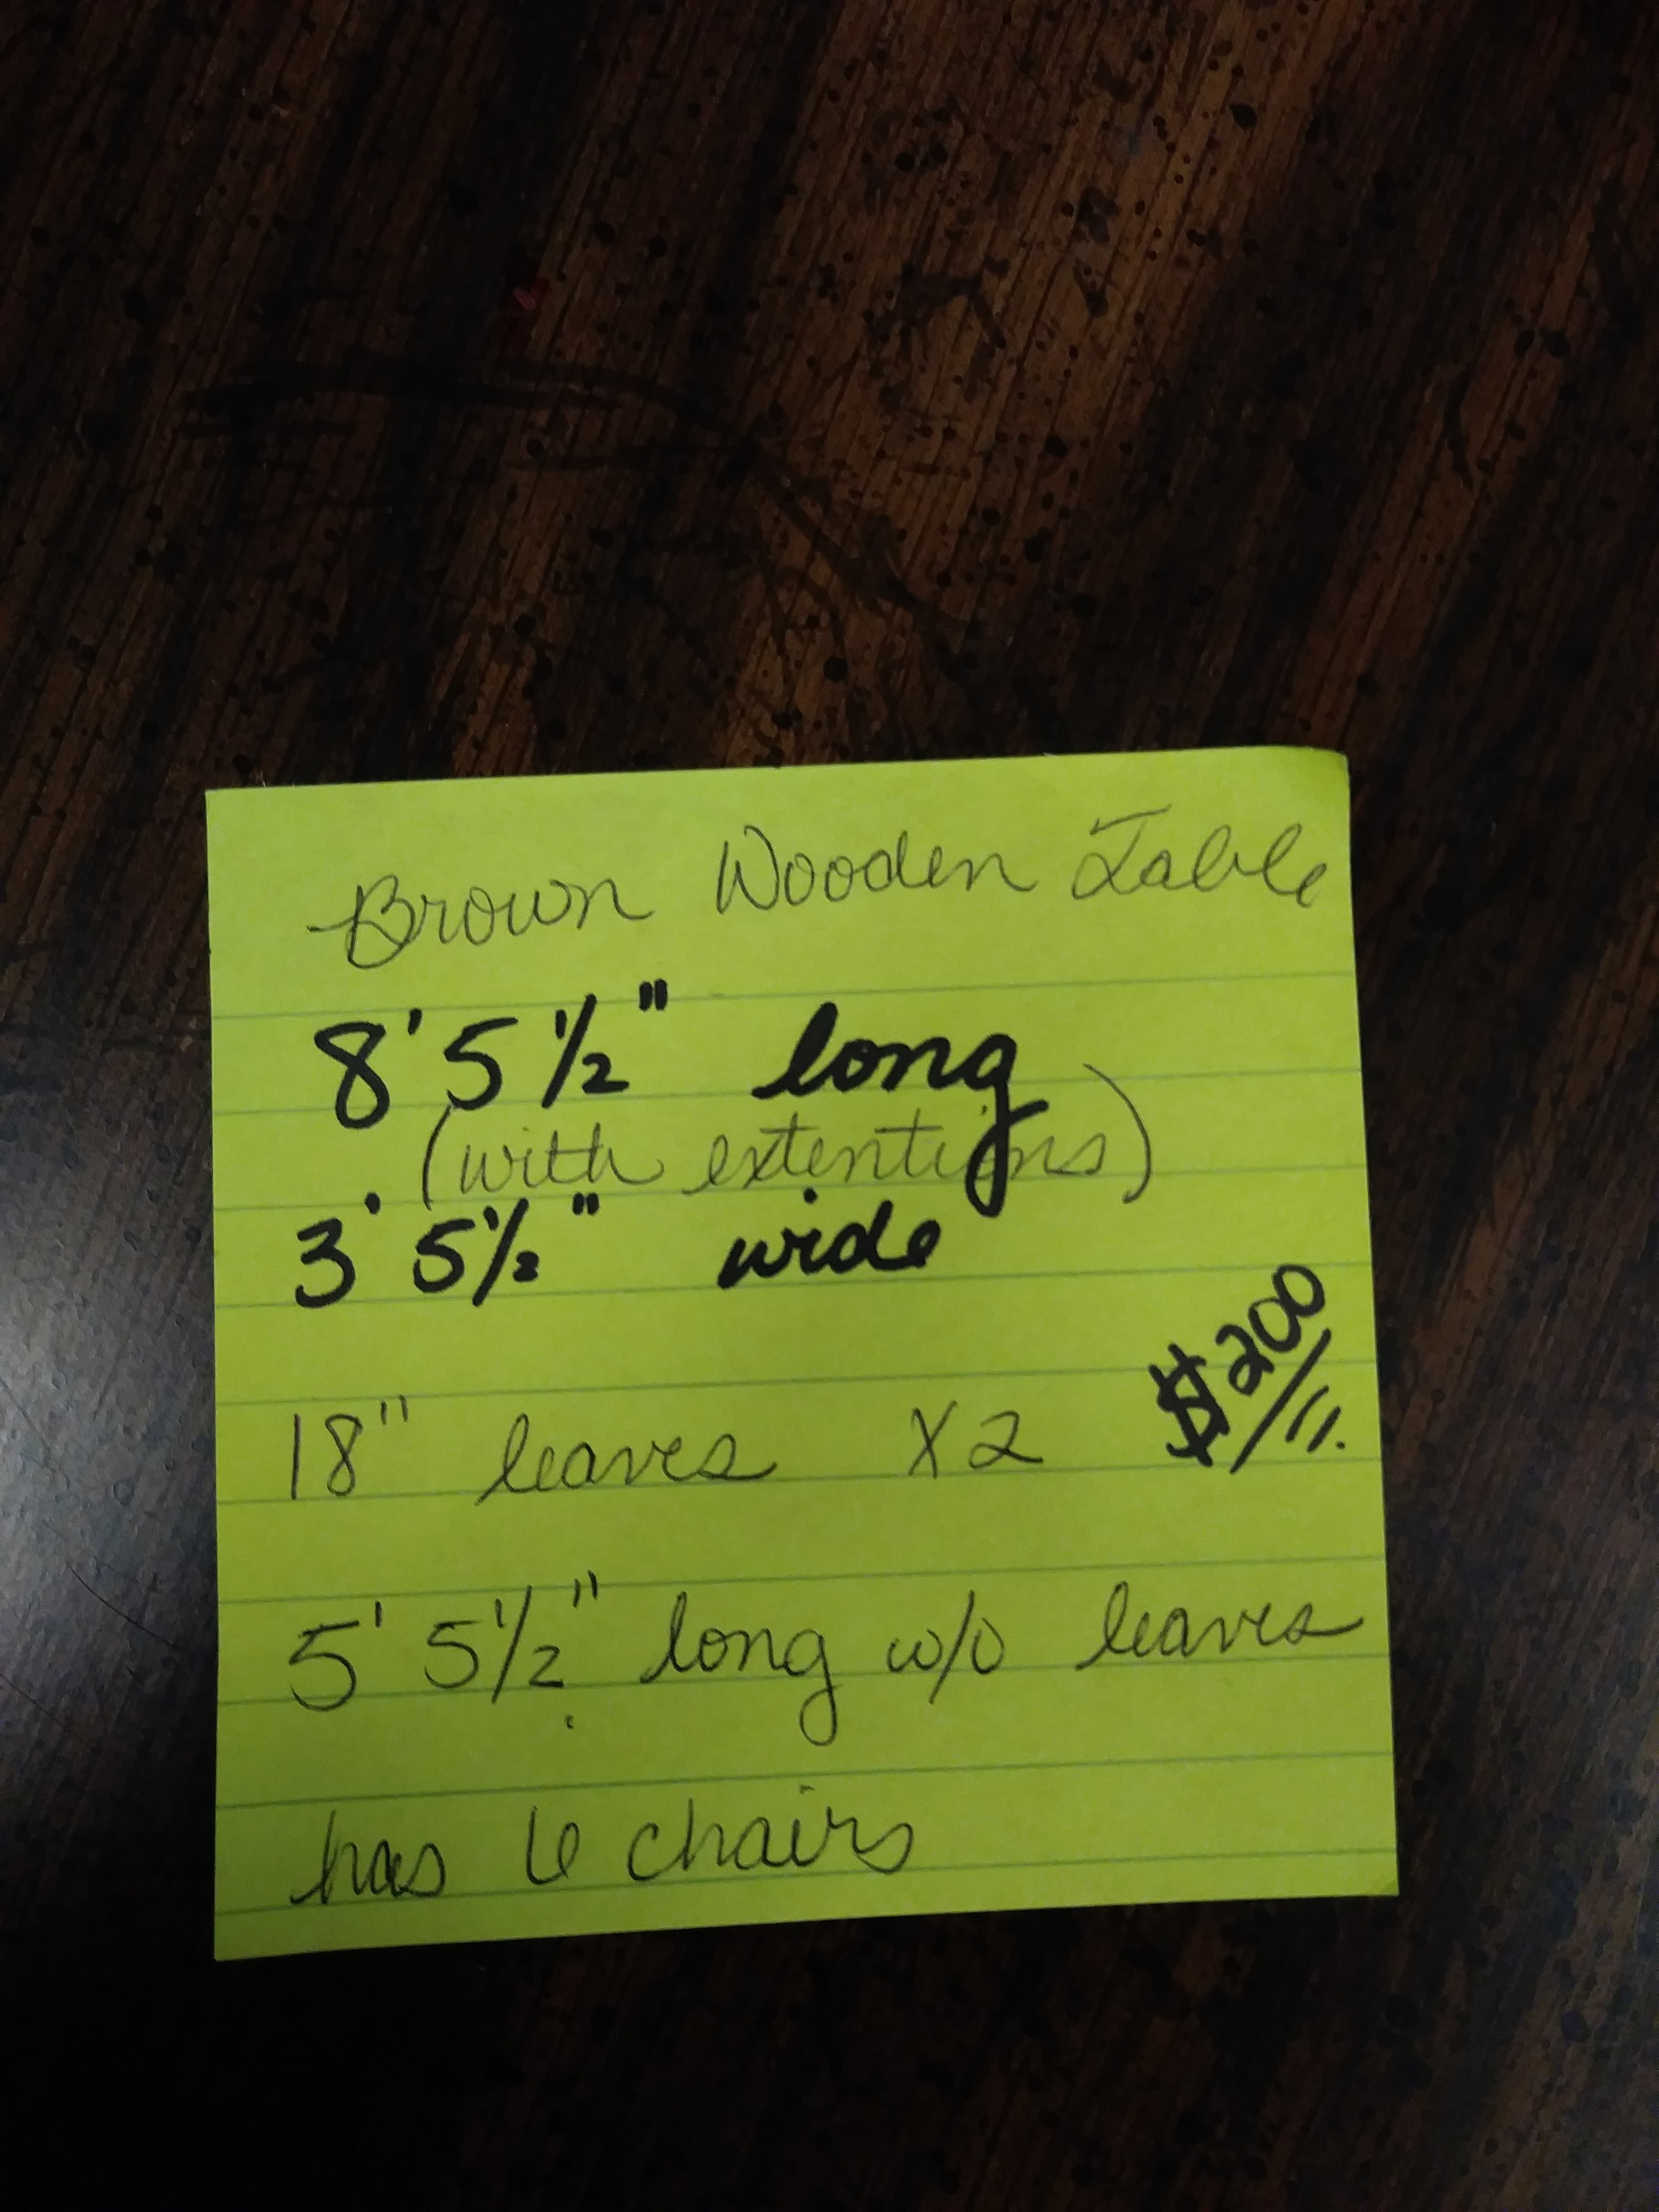 Brown Wooden Table
8' 5 1/2" long
(with extentions)
3' 5 1/2" wide
$200
18" leaves X2
5' 5 1/2" long w/o leaves
has 6 chairs